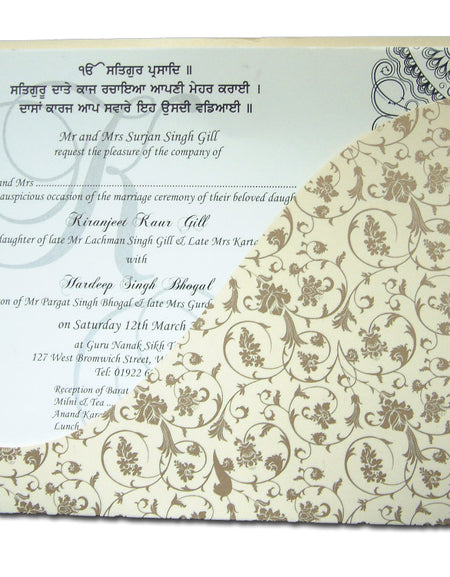 ੴ ਸਤਿਗੁਰ ਪ੍ਰਸਾਦਿ ॥
ਸਤਿਗੁਰੂ ਦਾਤੇ ਕਾਜ ਰਚਾਇਆ ਆਪਣੀ ਮੇਹਰ ਕਰਾਈ ।
ਦਾਸਾਂ ਕਾਰਜ ਆਪ ਸਵਾਰੇ ਇਹ ਉਸਦੀ ਵਡਿਆਈ ।
Mr and Mrs Surjan Singh Gill
request the pleasure of the company of
and Mrs
auspicious occasion of the marriage ceremony of their beloved daugh
Kiranjeet Kaur Gill
daughter of late Mr Lachman Singh Gill & Late Mrs Karta
with
Hardeep Singh Bhogal
on of Mr Pargat Singh Bhogal & late Mrs Gurd
on Saturday 12th March
at Guru Nanak Sikh T
127 West Bromwich Street, W
Tel: 01922 6
Reception of Barat
Milni & Tea ....
Anand Kar
Lunch